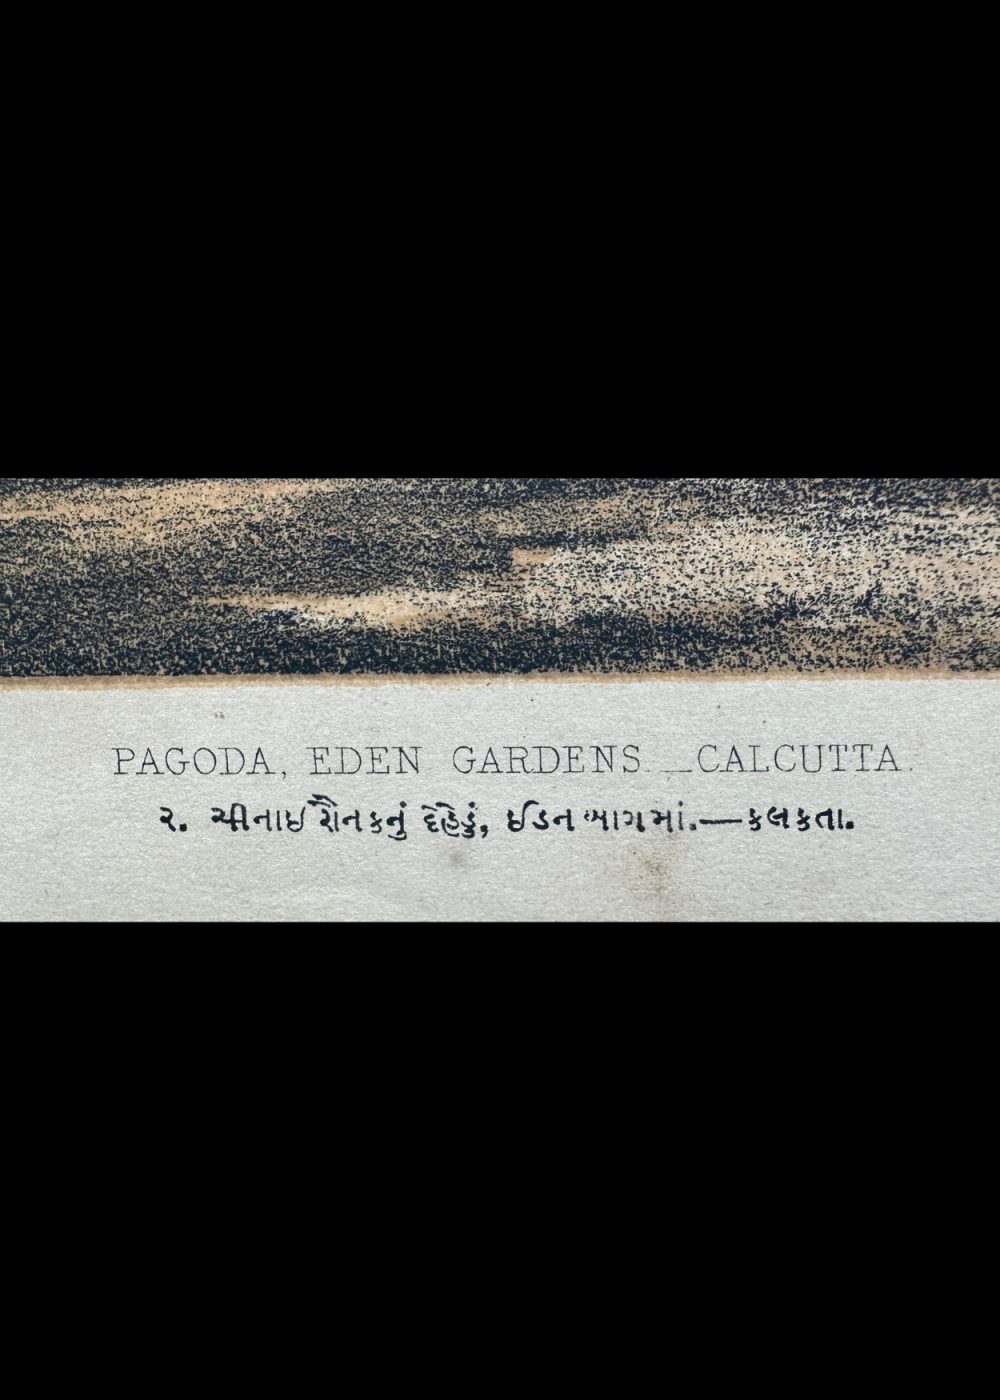 PAGODA, EDEN GARDENS.—CALCUTTA.
૨. ચીનાઈ રૌનકનું દેહેડું, ઈડન બાગમાં.—કલકતા.